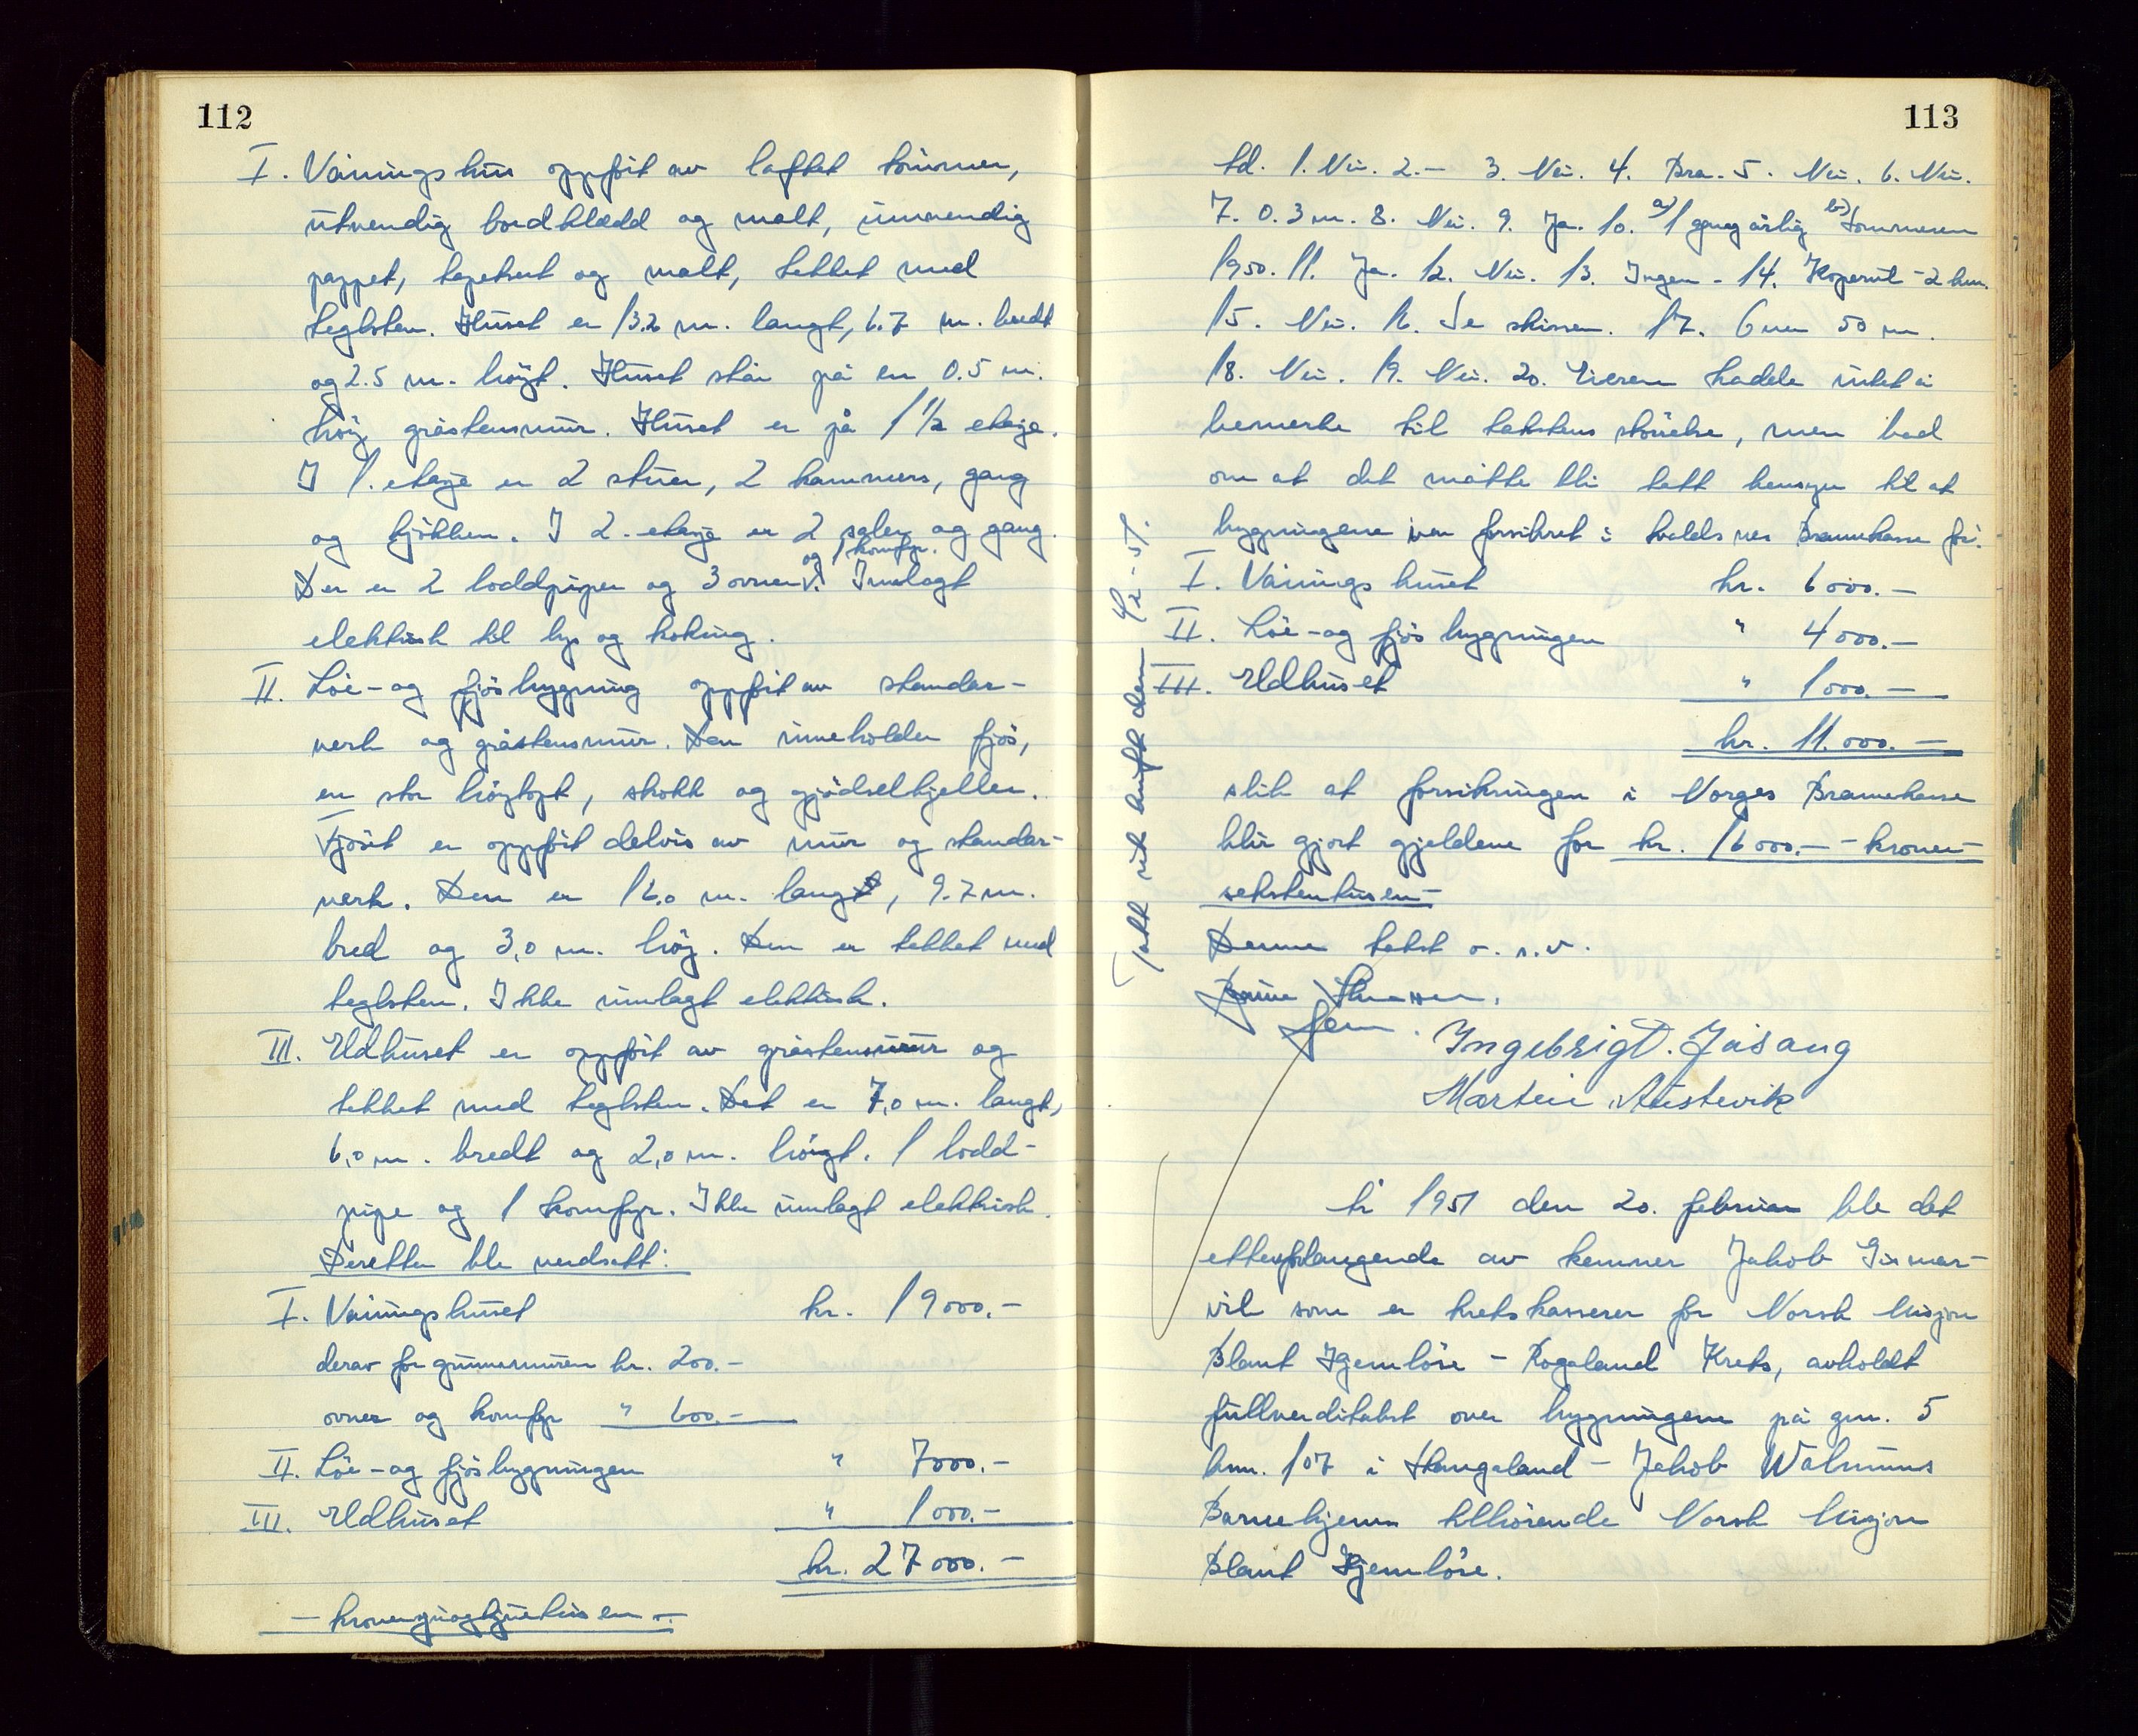 112
I. Våningshus oppført av laftet tømmer,
utvendig bordkledd og malt, innvendig
pappet, tapetsert og malt, tekket med
teglsten. Huset er 13.2 m. langt, 6.7 m. bredt
og 2.5 m. høgt. Huset står på en 0.5 m.
høg gråstensmur. Huset er på 1 1/2 etasje.
I 1. etasje er 2 stuer, 2 kammers, gang
og kjøkken. I 2. etasje er 2 saler og gang.
og 1 komfyr.
Der er 2 loddpiper og 3 ovner. Innlagt
elektrisk til lys og koking.
II. Løe- og fjøsbygning oppført av stender-
verk og gråstensmur. Den inneholder fjøs,
en stor høgtopt, skott og gjødselkjeller.
Fjøset er oppført delvis av mur og stender-
verk. Den er 16.0 m. lang, 9.7 m.
bred og 3,0 m. høg. Den er tekket med
teglsten. Ikke innlagt elektrisk.
III. Eldhuset er oppført av gråstensmur og
tekket med teglsten. Det er 7,0 m. langt,
6,0 m. bredt og 2,0 m. høgt. 1 lodd-
pipe og 1 komfyr. Ikke innlagt elektrisk.
Deretter ble verdsatt:
I. Våningshuset kr. 19000.-
derav for grunnmuren kr. 200.-
ovner og komfyr " 600.-
II. Løe- og fjøsbygningen " 7000.-
III. Eldhuset " 1000.-
kr. 27000.-
- kronertjuogsjutusen -
113
td. 1. Nei. 2.- 3. Nei. 4. Bra. 5. Nei. 6. Nei.
7. 0.3 m. 8. Nei. 9. Ja. 10. a) 1 gang årlig b) Sommeren
1950. 11. Ja. 12. Nei. 13. Ingen - 14. Kopervik - 2 km.
15. Nei. 16. Se skissen. 17. Over 50 m.
18. Nei. 19. Nei. 20. Eieren hadde intet å
bemerke til takstens størrelse, men bad
om at det måtte bli tatt hensyn til at
bygningene var forsikret i Avaldsnes Brannkasse for:
I. Våningshuset kr. 6000.-
II. Løe- og fjøsbygningen " 4000.-
III. Eldhuset " 1000.-
kr. 11.000.-
slik at forsikringen i Norges Brannkasse
blir gjort gjeldene for kr. 16000.- - kroner-
sekstentusen-
Denne takst o.s.v.
Ingebrigt. Jåsang
Martin Austevik
År 1951 den 20. februar ble det
etter forlangende av kemner Jakob Gismar-
vik som er kretskasserer for Norsk Misjon
Blant Hjemløse - Rogaland Krets, avholdt
fullverditakst over bygningene på gnr. 5
bnr. 107 i Haugeland - Jakob Walnums
Barnehjem tilhørende Norsk Misjon
Blant Hjemløse.